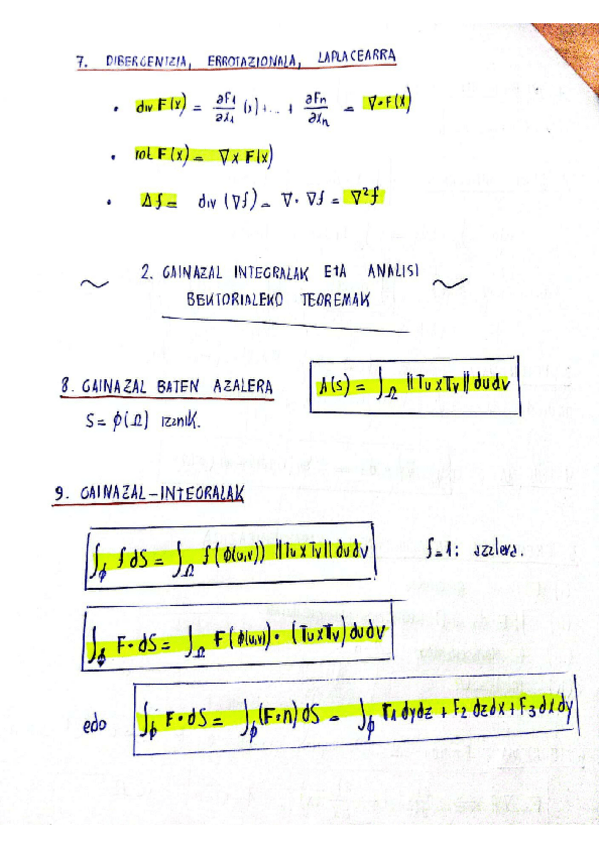 7. DIBERGENTZIA, ERROTAZIONALA, LAPLACEARRA
• div F(x) = ∂F₁/∂x₁ (x)+...+ ∂Fn/∂xn = ∇·F(x)
• rot F(x) = ∇×F(x)
• Δf = div (∇f) = ∇·∇f = ∇²f
~ 2. GAINAZAL INTEGRALAK ETA ANALISI ~
BEKTORIALEKO TEOREMAK
8. GAINAZAL BATEN AZALERA
A(S) = ∫_Ω ||Tu×Tv|| dudv
S = ϕ(Ω) izanik.
9. GAINAZAL-INTEGRALAK
∫_ϕ f dS = ∫_Ω f(ϕ(u,v)) ||Tu×Tv|| dudv f=1: azalera.
∫_ϕ F·dS = ∫_Ω F(ϕ(u,v))·(Tu×Tv) dudv
edo ∫_ϕ F·dS = ∫_ϕ (F·n) dS = ∫_ϕ F₁ dydz + F₂ dzdx + F₃ dxdy